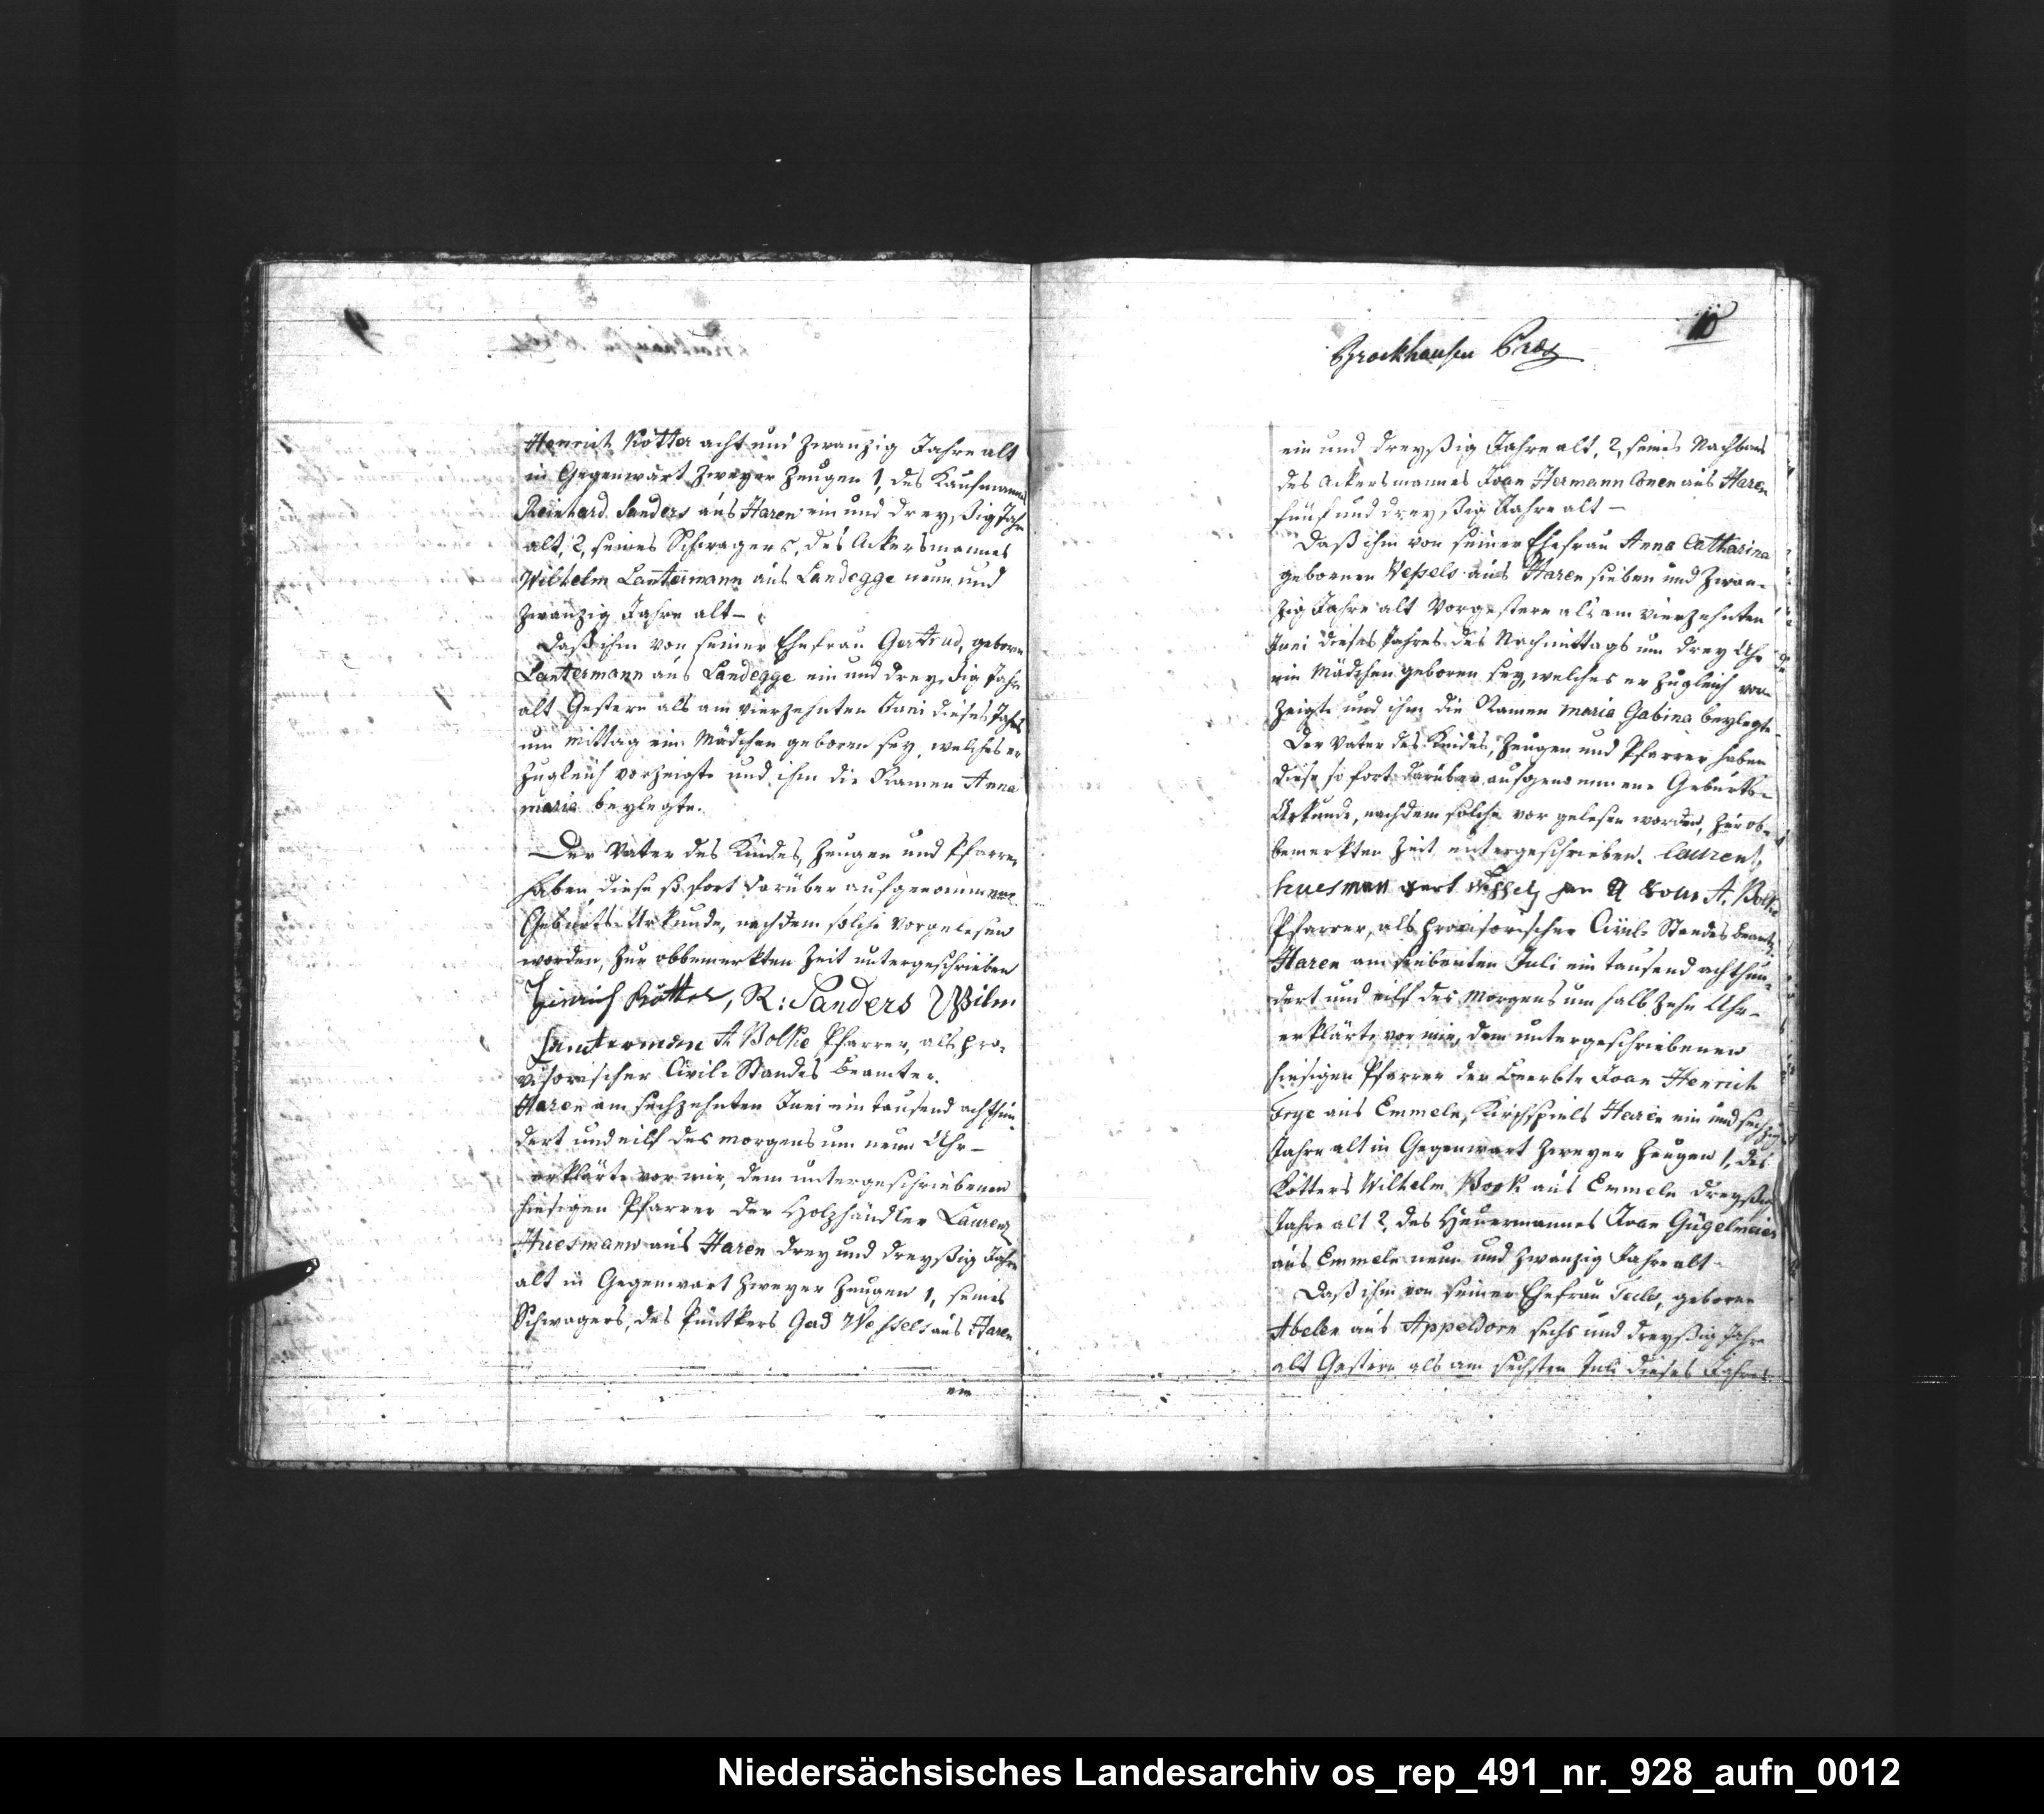 Henrich Kötter acht und zwanzig Jahre alt
in Gegenwart zweyer Zeugen 1, des Kaufmanns
Reinhard Sanders aus Haren ein und dreyßig Jahr
alt, 2, seines Schwagers, des Ackersmannes
Wilhelm Lantermann aus Landegge neun und
zwanzig Jahre alt –
Daß ihm von seiner Ehefrau Gertrud, geborne
Lantermann aus Landegge ein und dreyßig Jahr
alt Gestern als am vierzehnten Junii dieses Jahrs
um Mittag ein Mädchen geboren sey, welches er
zugleich vorzeigte und ihm die Namen Anna
maria beylegte.
Der Vater des Kindes, Zeugen und Pfarrer
haben diese so fort darüber aufgenommene
Geburts-Urkunde, nachdem solche vorgelesen
worden, zur obbemerkten Zeit untergeschrieben
Hinrich Kötter, R: Sanders Wilm
Lanterman A Bolke Pfarrer, als pro-
visorischer Civil-Standes Beamter.
Haren am sechzehnten Junii ein tausend achthun-
dert und eilf des morgens um neun Uhr –
erklärte vor mir, dem untergeschriebenen
hiesigen Pfarrer der Holzhändler Laurenz
Huesmann aus Haren drey und dreyßig Jahre
alt in Gegenwart zweyer Zeugen 1, seines
Schwagers, des Püntkers Gerd Wessels aus Haren
ein
10
Brockhausen
ein und dreyßig Jahre alt, 2, seines Nachbars
des Ackersmannes Joan Hermann Conen aus Haren
fünf und dreyßig Jahre alt –
Daß ihm von seiner Ehefrau Anna Catharina
gebornen Wessels aus Haren sieben und zwan-
zig Jahre alt Vorgestern als am vierzehnten
Junii dieses Jahres des Nachmittags um drey Uhr
ein Mädchen geboren sey, welches er zugleich vor-
zeigte und ihm die Namen maria Gabina beylegte
Der Vater des Kindes, Zeugen und Pfarrer haben
diese so fort darüber aufgenommene Geburts-
Urkunde, nachdem solche vor gelesen worden, zur ob-
bemerkten Zeit untergeschrieben. laurens
huesman gert A. Bolke
Pfarrer, als provisorischer Civil-Standes Beamte
Haren am siebenten Juli ein tausend achthun-
dert und eilf des Morgens um halb zehn Uhr –
erklärte vor mir, dem untergeschriebenen
hiesigen Pfarrer der Beerbte Joan Henrich
aus Emmeln, Kirchspiels Haren ein und sechzig
Jahre alt in Gegenwart zweyer Zeugen 1, des
Kötters Wilhelm Book aus Emmeln dreyßig
Jahre alt 2, des Heuermannes Joan Gügelmeier
aus Emmeln neun und zwanzig Jahre alt –
Daß ihm von seiner Ehefrau geborne
Abelen aus Appeldorn sechs und dreyßig Jahre
alt Gestern als am sechsten Juli dieses Jahres
Niedersächsisches Landesarchiv os_rep_491_nr._928_aufn_0012